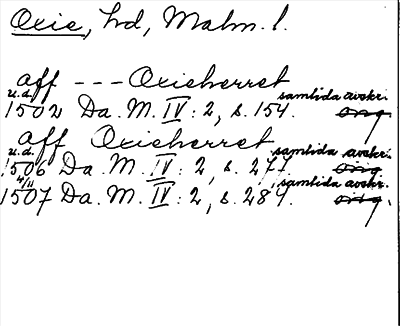 Oxie, hd, Malm. l.
aff --- Oxieherret
u.d. samtida avskr.
1502 Da. M. IV: 2, s. 154. orig
aff Oxieherret
u.d. samtida avskr.
1506 Da. M. IV: 2, s. 277. orig
4/11 samtida avskr.
1507 Da. M. IV: 2, s. 287. orig.